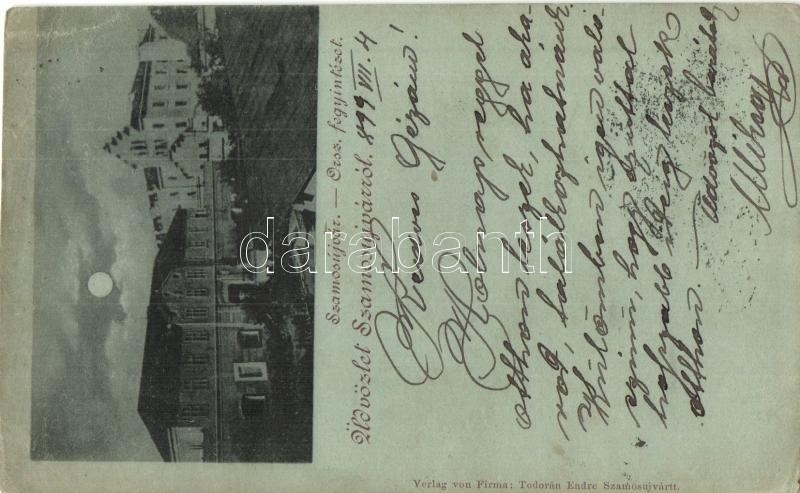 Szamosújvár. — Orsz. fegyintézet.
Üdvözlet Szamosújvárról. 899 VII. 4
Kedves Gézám!
Holnap reggel
otthon leszek, ha
találkozhatnánk
Különben igen való-
szinű, hogy
hosszabb ideig leszek
otthon. —
Üdvözöl barátod
Verlag von Firma: Todorán Endre Szamosujvártt.
darabanth